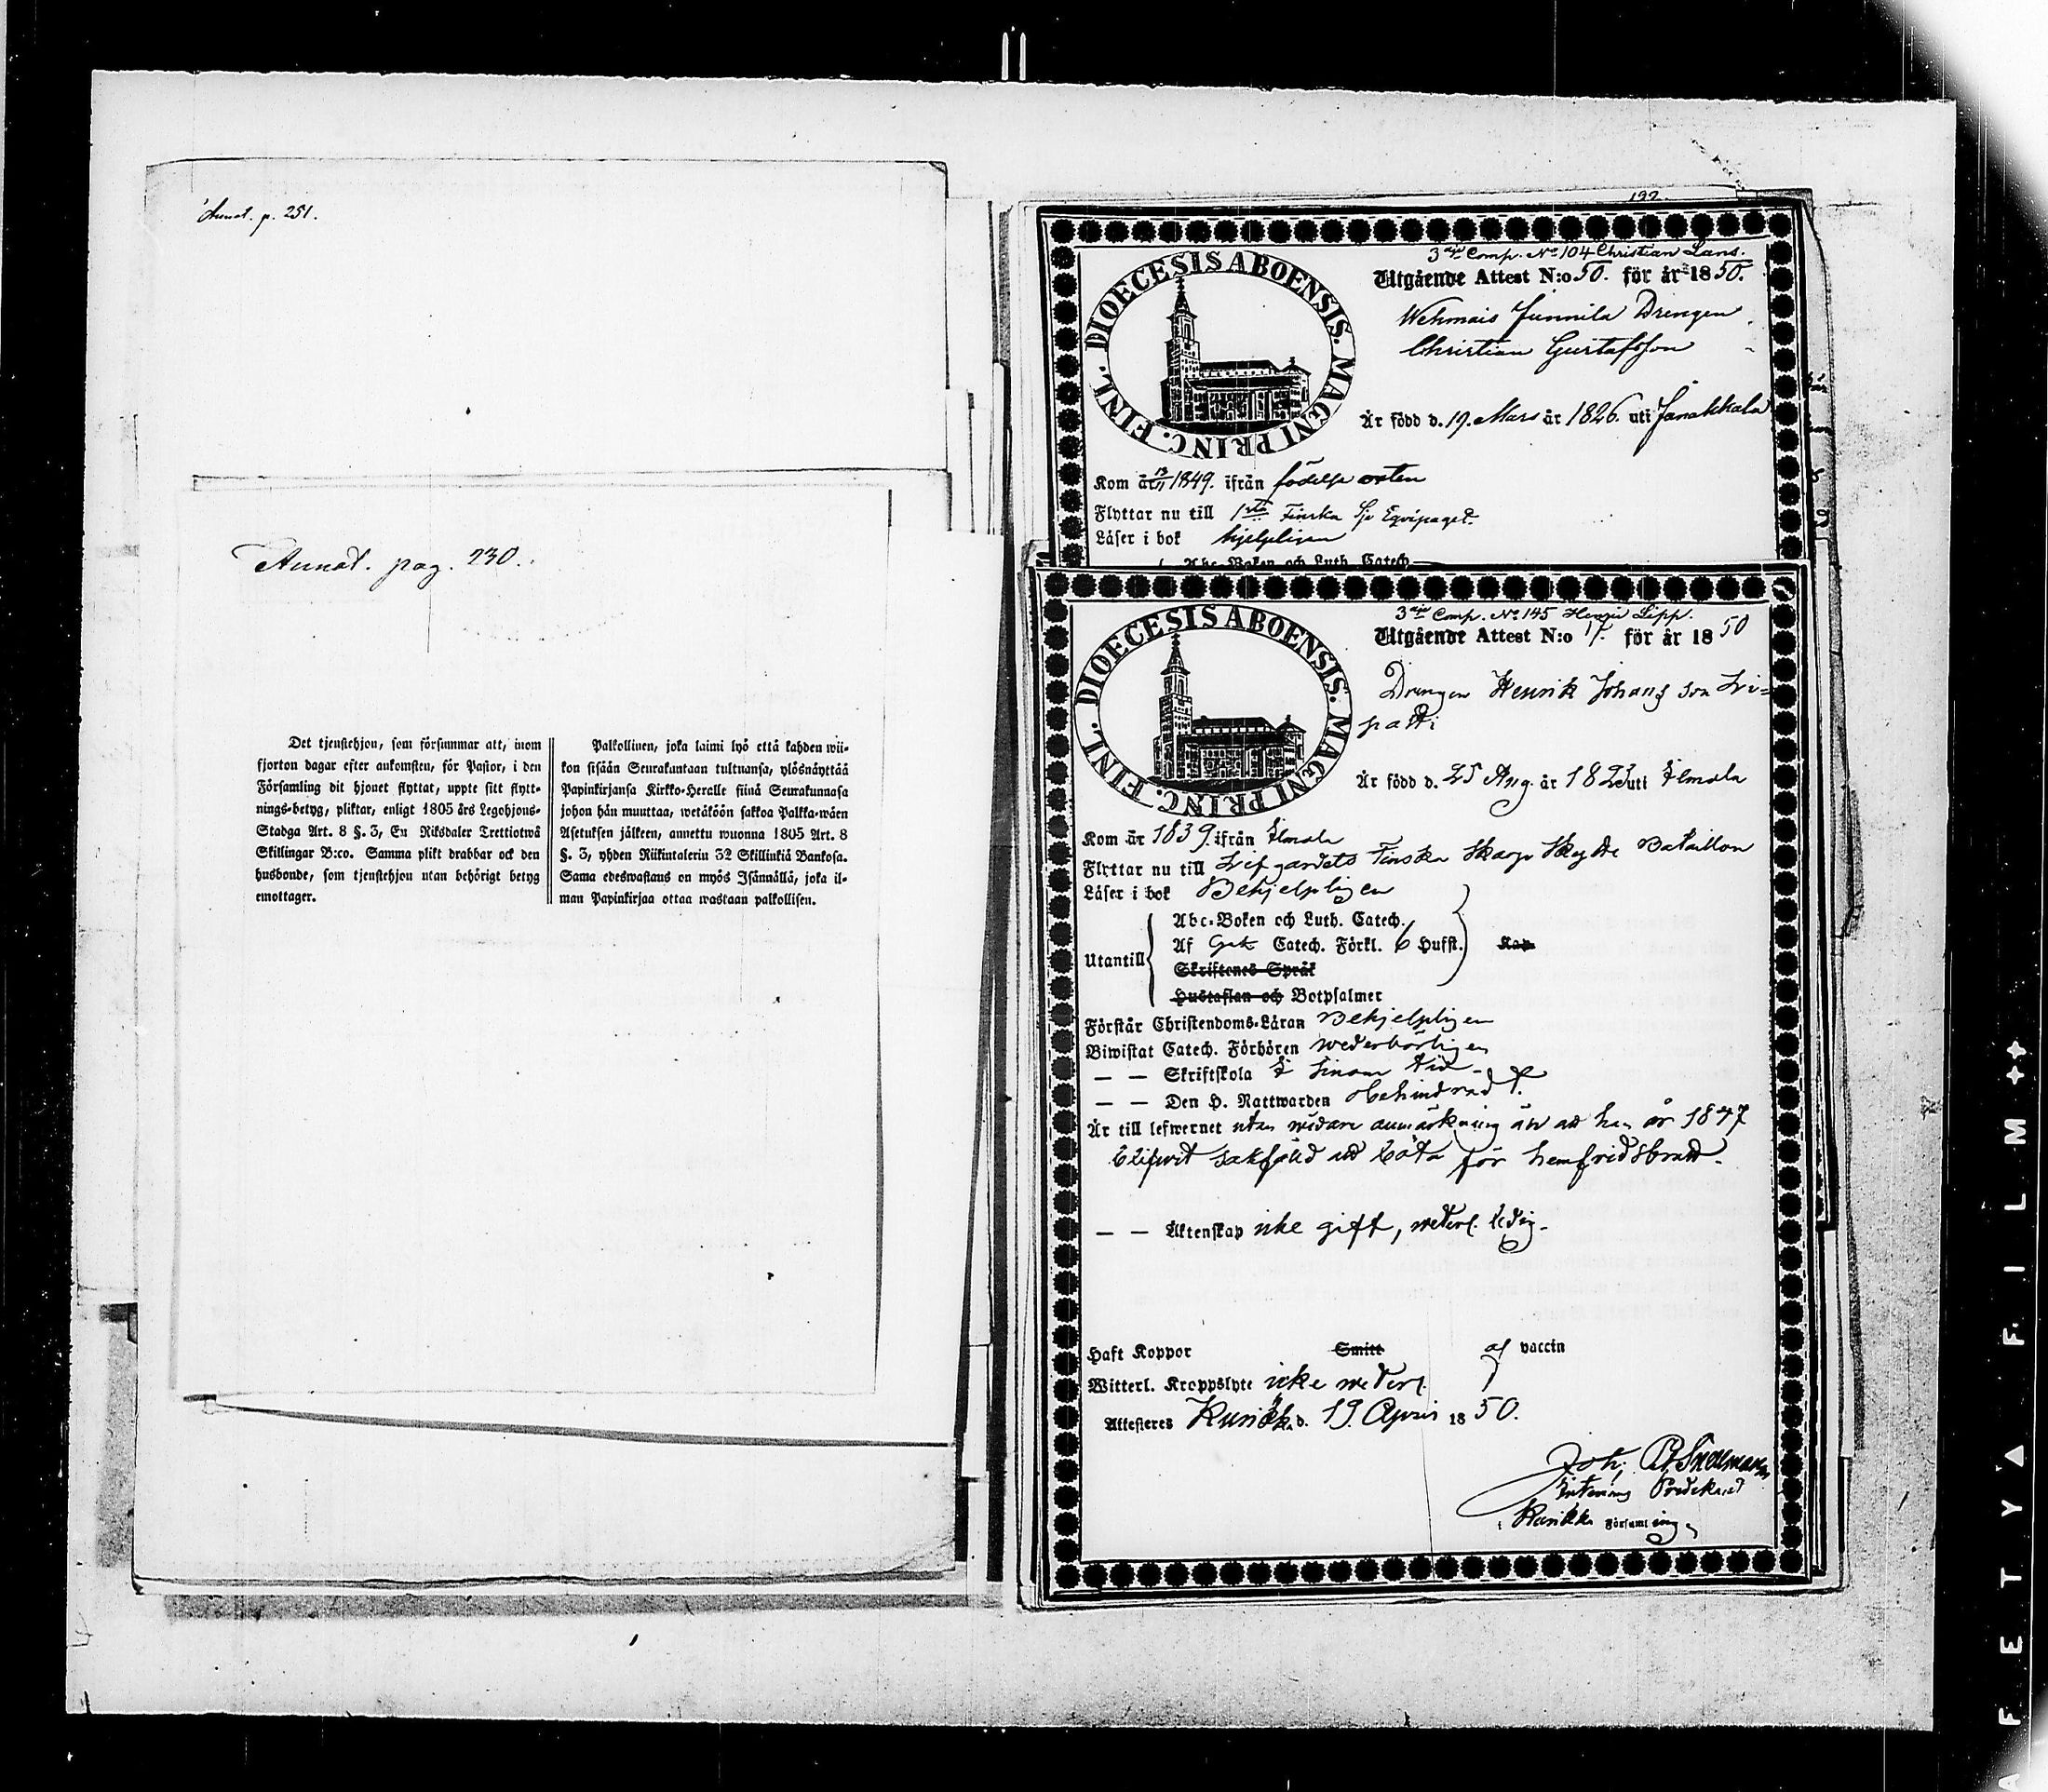 Annot. p. 251.
Annot. pag. 230.
Det tjenstehjon, som försummar att, inom
fjorton dagar efter ankomsten, för Pastor, i den
Församling dit hjonet flyttat, uppte sitt flytt-
nings-betyg, pliktar, enligt 1805 års Legohjons-
Stadga Art. 8 §. 3, En Riksdaler Trettiotwå
Skillingar B:co. Samma plikt drabbar ock den
husbonde, som tjenstehjon utan behörigt betyg
emottager.
Palkollinen, joka laimi lyö että kahden wii-
kon sisään Seurakuntaan tultuansa, ylösnäyttää
Papinkirjansa Kirkko-Heralle siinä Seurakunnasa
johon hän muuttaa, wetäköön sakkoa Palkka-wäen
Asetuksen jälkeen, annettu wuonna 1805 Art. 8
§. 3, yhden Riikintalerin 32 Skillinkiä Bankosa.
Sama edeswastaus on myös Isännällä, joka il-
man Papinkirjaa ottaa wastaan palkollisen.
3dje Comp. No 104 Christian Lans.
DIOECESIS ABOENSIS. MAGNI PRINC. FINL.
Utgående Attest N:o 50. för år 1850.
Wehmais Junnila Drengen
Christian Gustafsson
Är född d. 19. Mars år 1826. uti Janakkala
Kom år 1849. ifrån födelse orten
Flyttar nu till 1sta Finska Sjö Equipaget.
Läser i bok hjelpligen
Abc-Boken och Luth. Catech.
3dje Comp. No 145 Henric Lipp.
DIOECESIS ABOENSIS. MAGNI PRINC. FINL.
Utgående Attest N:o 17. för år 1850
Drengen Henrik Johansson Li=
patti
Är född d. 25 Aug. år 1823 uti Ilmola
Kom år 1839. ifrån Ilmola
Flyttar nu till Lifgardets Finska Skarp Skytte Bataillon
Läser i bok Behjelpligen
Utantill
Abc-Boken och Luth. Catech.
Af Catech. Förkl. 6 Hufst.
Skriftenes Språk
Hustaflan och Botpsalmer
Förstår Christendoms-Läran Behjelpligen
Biwistat Catech. Förhören wederbörligen
— — Skriftskola I sinom tid
— — Den H. Nattwarden obehindrad t.
Är till lefwernet utan widare anmärkning än att han år 1847
blifwit sakfälld att böta för hemfridsbrott.
— — Äktenskap icke gift, weterl. ledig.
Haft Koppor Smitt af vaccin
Witterl. Kroppslyte icke weterl.
Attesteres Kurikka d. 19. April 1850.
Joh. Snellman
Predikant
i Kurikka Församling
SAFETY FILM